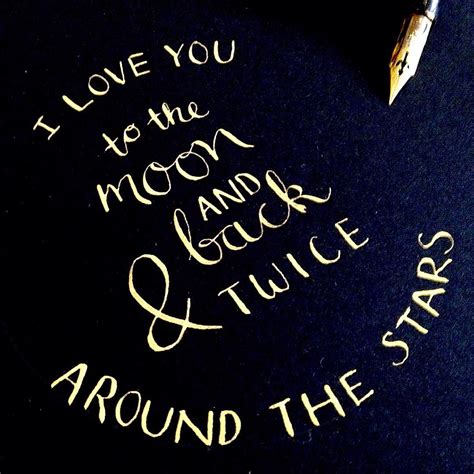 I LOVE YOU
to the
moon
AND
back
& TWICE
AROUND THE STARS